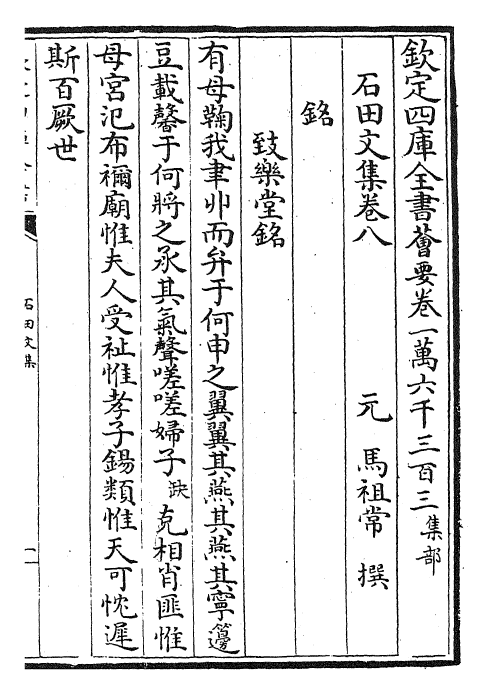 欽定四庫全書薈要卷一萬六千三百三集部
石田文集卷八 元 馬祖常 撰
銘
致樂堂銘
有母鞠我聿丱而弁于何申之翼翼其燕其燕其寧籩
豆載馨于何將之承其氣聲嗟嗟婦子缺克相肖匪惟
母宮氾布禰廟惟夫人受祉惟孝子錫類惟天可忱遲
斯百厥世
石田文集